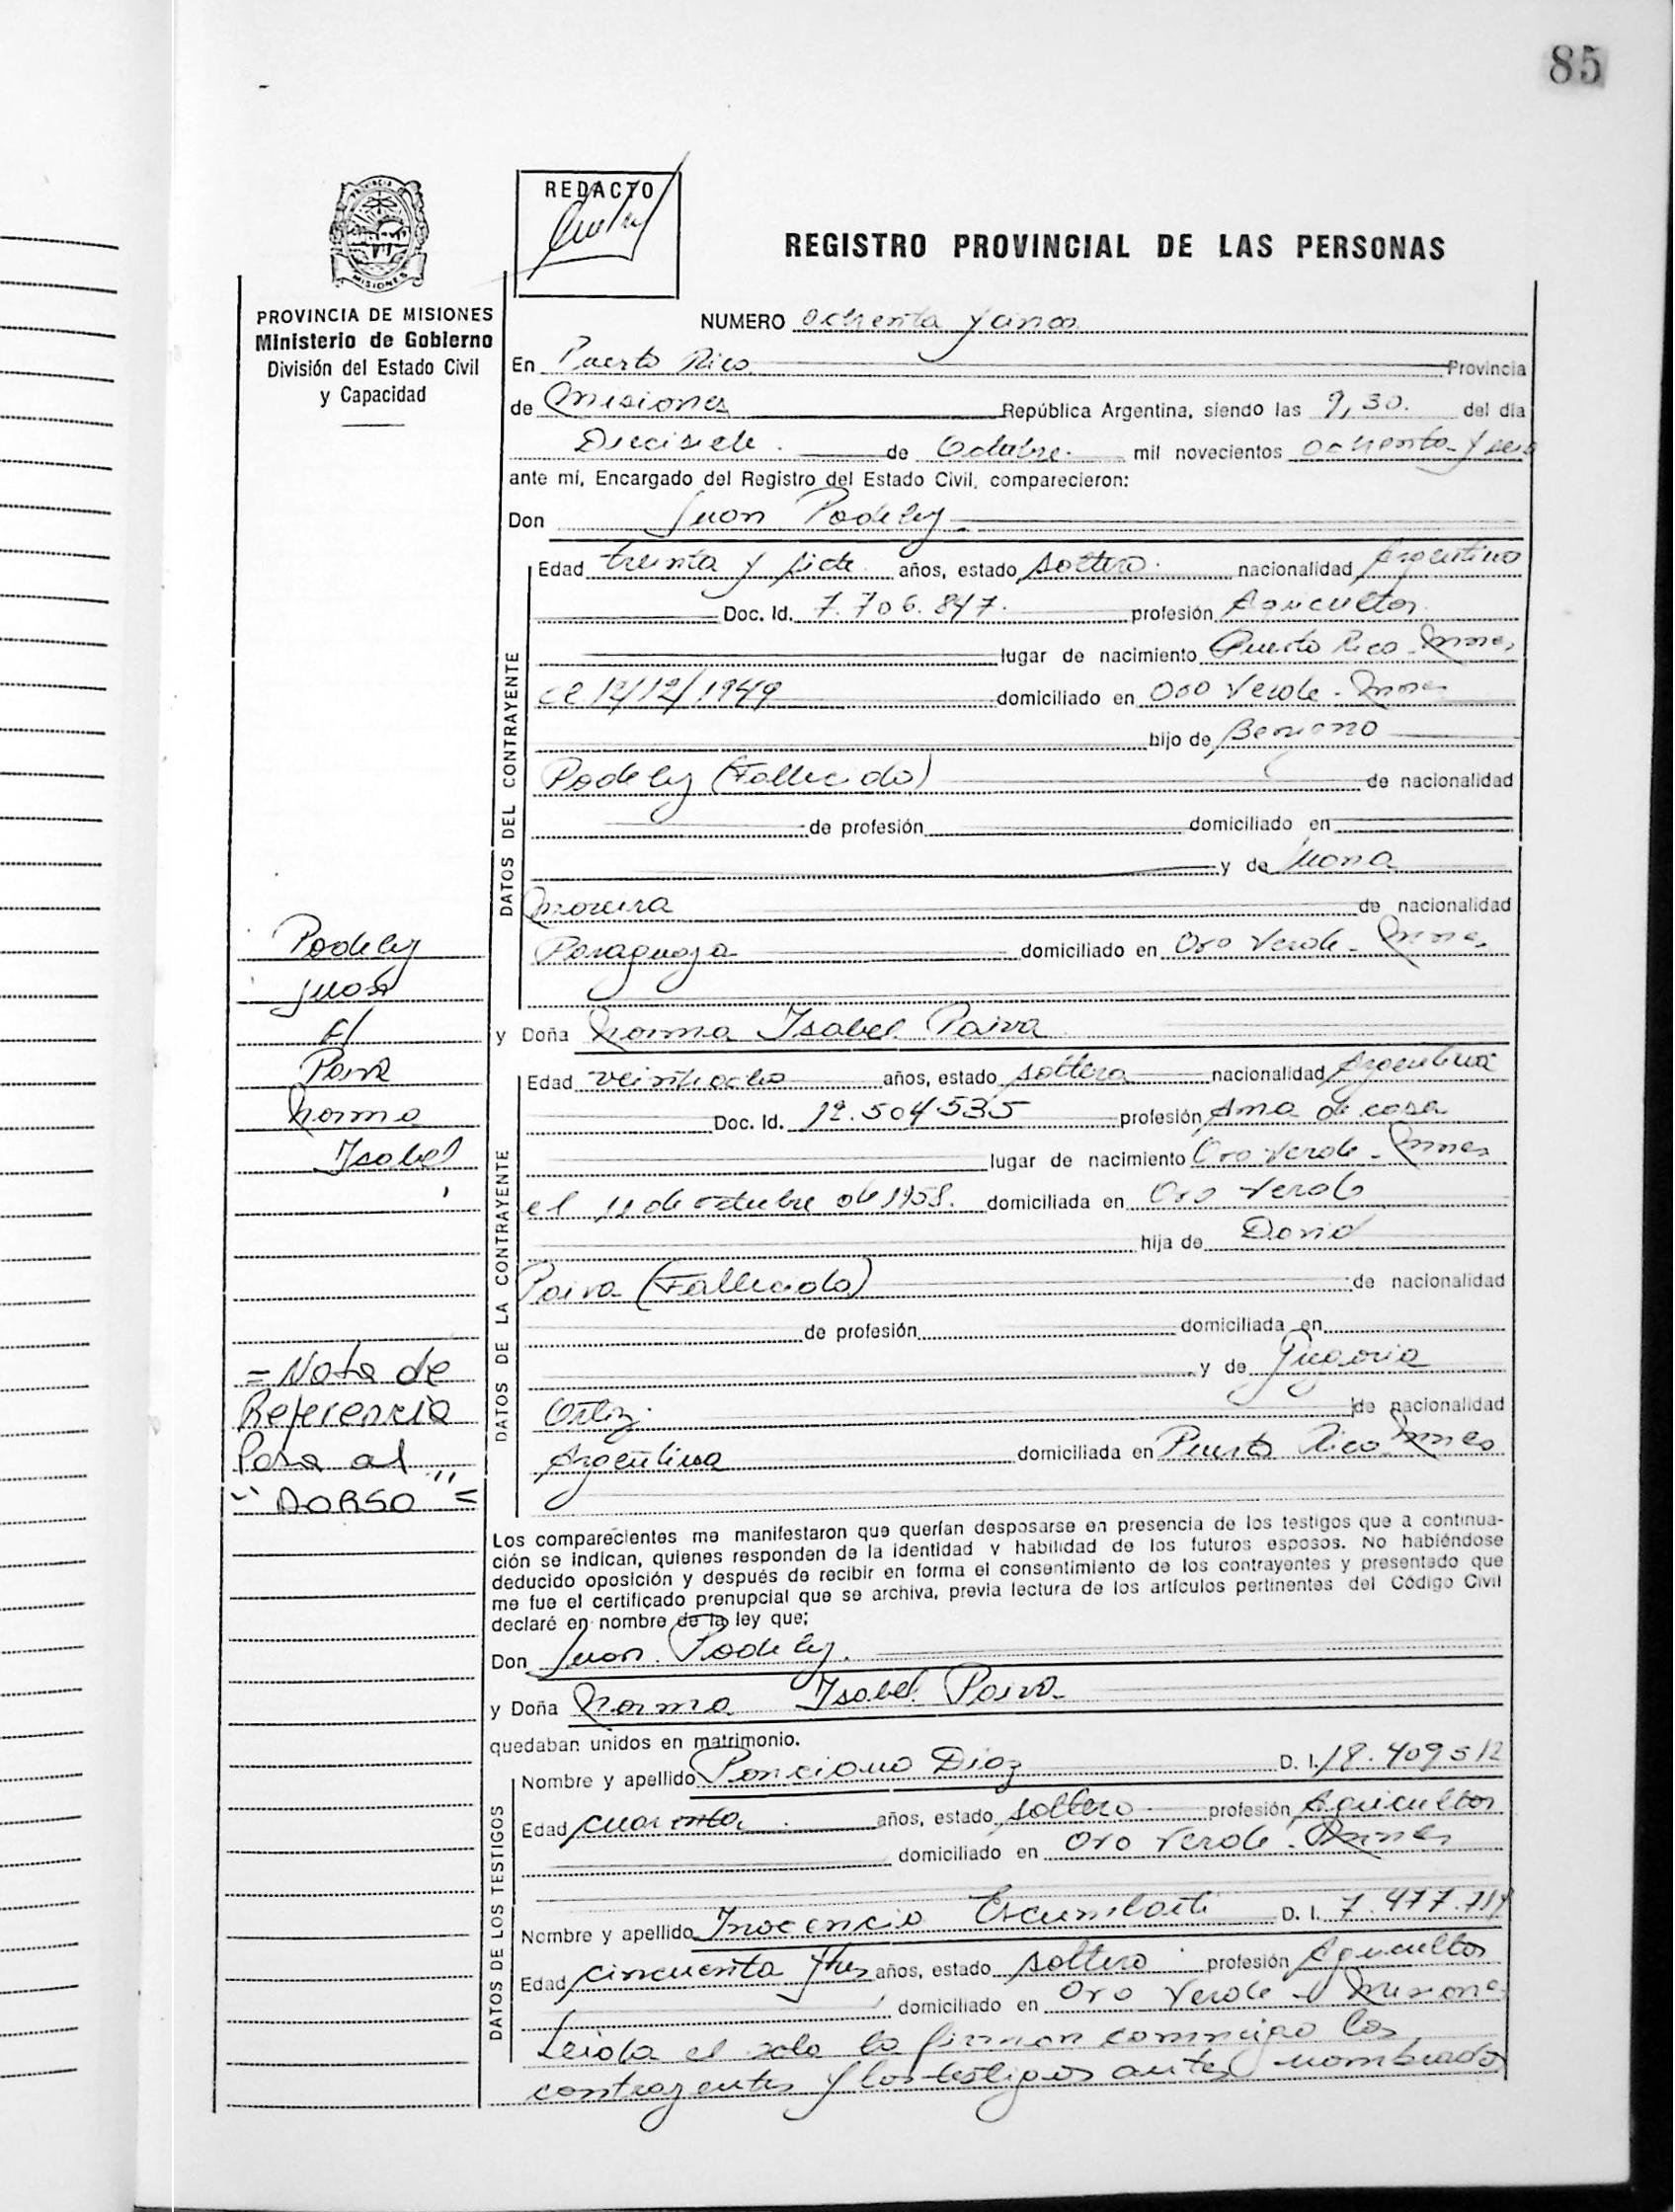 85
REDACTO
REGISTRO PROVINCIAL DE LAS PERSONAS
MISIONES
PROVINCIA DE MISIONES
Ministerio de Gobierno
División del Estado Civil
y Capacidad
NUMERO ochenta y cinco
En Puerto Rico Provincia
de Misiones República Argentina, siendo las 9,30. del día
Diecisiete. de Octubre. mil novecientos ochenta y seis
ante mí, Encargado del Registro del Estado Civil, comparecieron:
Don Juan Podeley
DATOS DEL CONTRAYENTE
Edad treinta y siete años, estado soltero. nacionalidad Argentino
Doc. Id. 7.706.847. profesión Agricultor
lugar de nacimiento Puerto Rico Mnes
el 12/12/1949 domiciliado en Oro Verde - Mnes
hijo de Benigno
Podeley (Fallecido) de nacionalidad
de profesión domiciliado en
y de Juana
Moreira de nacionalidad
Paraguaya domiciliado en Oro Verde - Mnes
y Doña Norma Isabel Paiva
DATOS DE LA CONTRAYENTE
Edad veintiocho años, estado soltera nacionalidad Argentina
Doc. Id. 12.504535 profesión Ama de casa
lugar de nacimiento Oro Verde - Mnes
el 11 de octubre de 1958. domiciliada en Oro Verde
hija de David
Paiva (Fallecido) de nacionalidad
de profesión domiciliada en
y de Gregoria
Ortiz. de nacionalidad
Argentina domiciliada en Puerto Rico Mnes
Podeley
Juan
c/
Paiva
Norma
Isabel
= Nota de
Referencia
Pasa al
"DORSO" =
Los comparecientes me manifestaron que querían desposarse en presencia de los testigos que a continua-
ción se indican, quienes responden de la identidad y habilidad de los futuros esposos. No habiéndose
deducido oposición y después de recibir en forma el consentimiento de los contrayentes y presentado que
me fue el certificado prenupcial que se archiva, previa lectura de los artículos pertinentes del Código Civil
declaré en nombre de la ley que;
Don Juan Podeley.
y Doña Norma Isabel Paiva
quedaban unidos en matrimonio.
DATOS DE LOS TESTIGOS
Nombre y apellido Ponciano Diaz D. I. 18.409512
Edad cuarenta. años, estado soltero profesión Agricultor
domiciliado en Oro Verde - Mnes
Nombre y apellido Inocencio D. I. 7.477.
Edad cincuenta y tres años, estado soltero profesión Agricultor
domiciliado en Oro Verde - Misiones
Leida el acta la firman conmigo los
contrayentes y los testigos antes nombrados